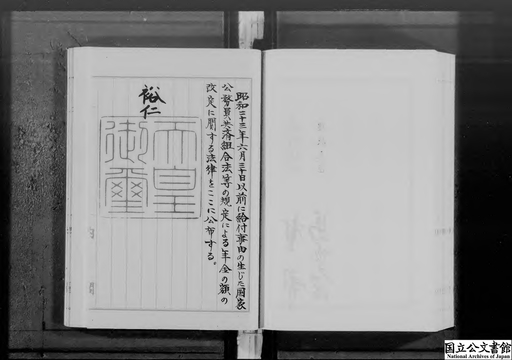 昭和三十三年六月三十日以前に給付事由の生じた国家
公務員共済組合法等の規定による年金の額の
改定に関する法律をここに公布する。
裕仁
天皇
御璽
国立公文書館
National Archives of Japan